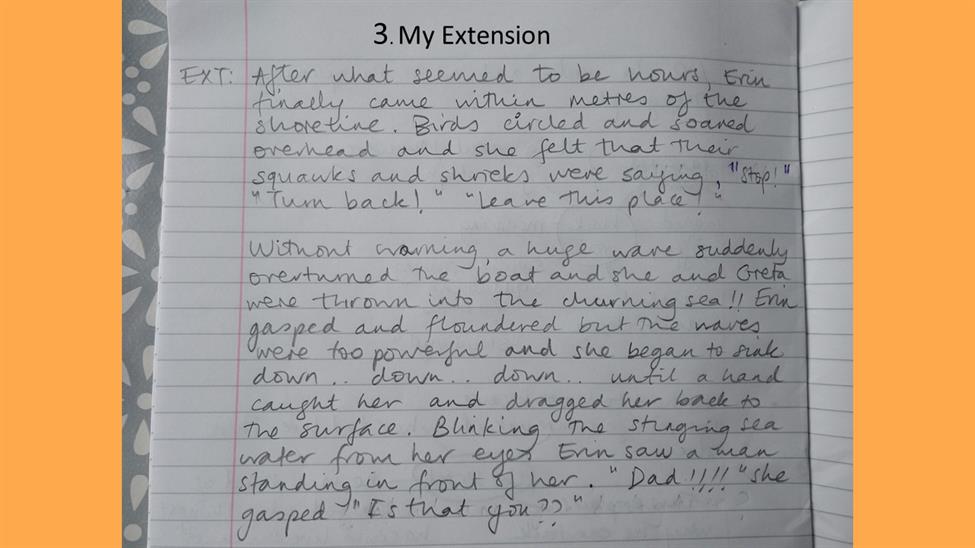 3. My Extension
EXT: After what seemed to be hours, Erin
finally came within metres of the
shoreline. Birds circled and soared
overhead and she felt that their
squawks and shrieks were saying, "Stop!"
"Turn back!" "Leave this place!"
Without warning, a huge wave suddenly
overturned the boat and she and Greta
were thrown into the churning sea!! Erin
gasped and floundered but the waves
were too powerful and she began to sink
down.. down.. down.. until a hand
caught her and dragged her back to
the surface. Blinking the stinging sea
water from her eyes Erin saw a man
standing in front of her. "Dad!!!!" she
gasped "Is that you??"